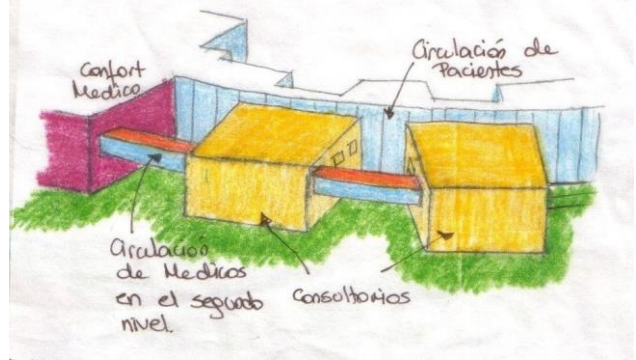 Confort
Medico
Circulación de
Pacientes
Circulación
de Medicos
en el segundo
nivel.
Consultorios